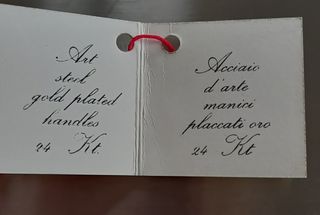 Art
steel
gold plated
handles
24 Kt.
Acciaio
d'arte
manici
placcati oro
24 Kt